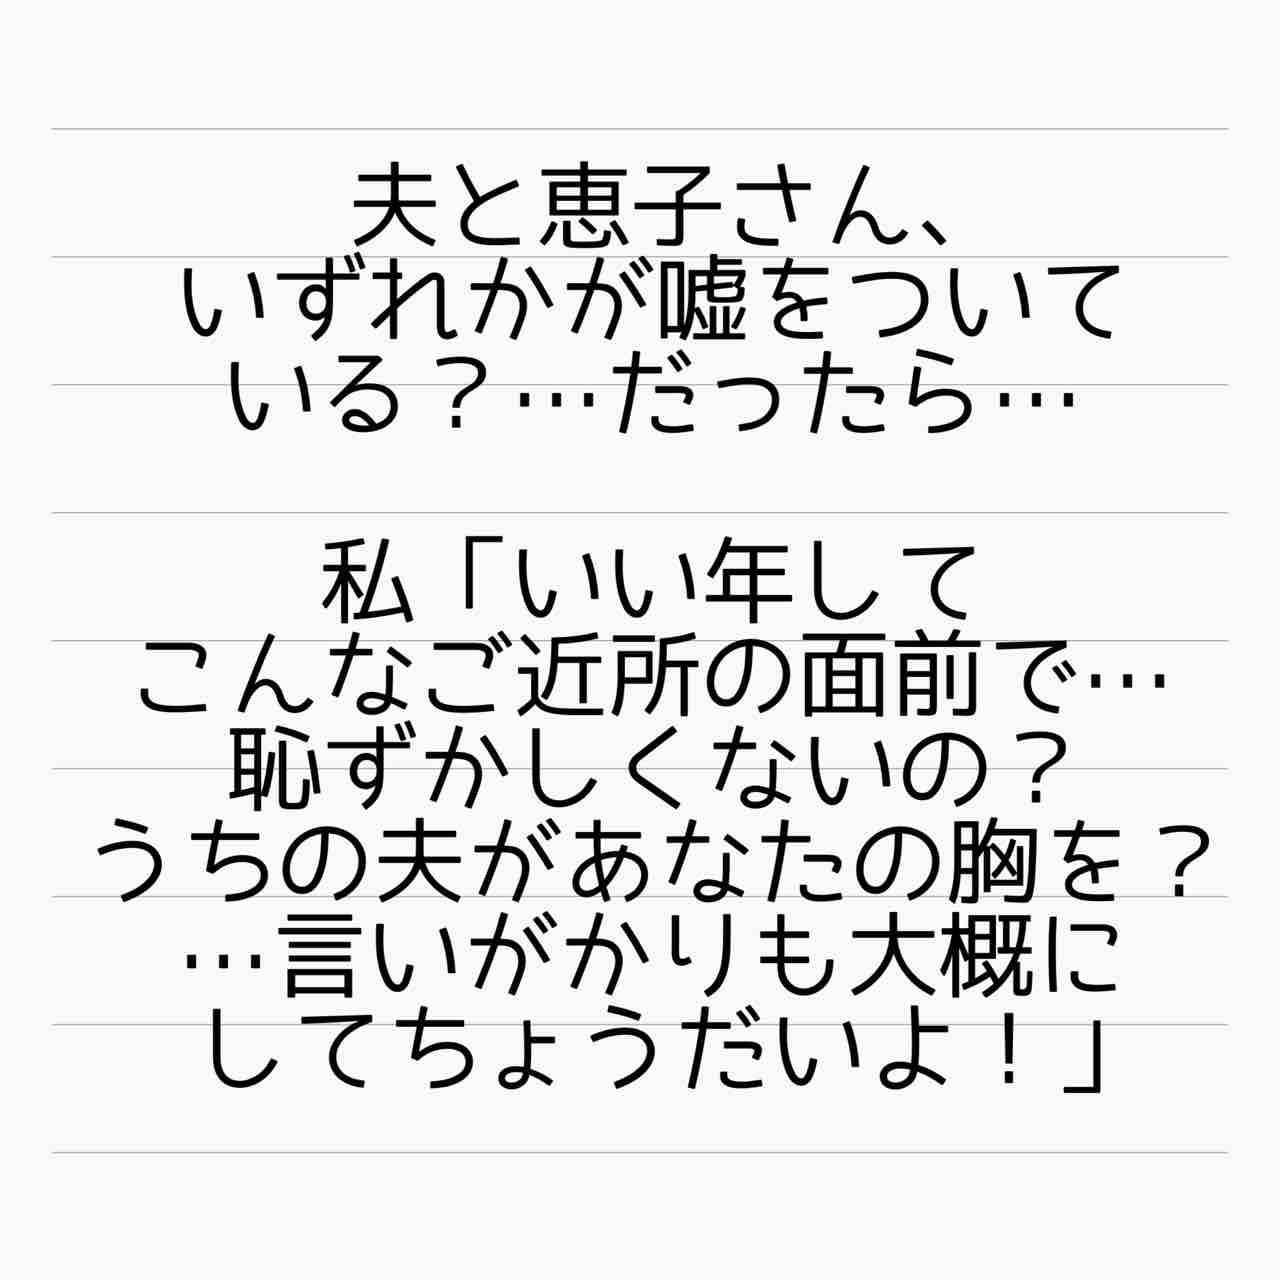 夫と恵子さん、
いずれかが嘘をついて
いる？…だったら…
私「いい年して
こんなご近所の面前で…
恥ずかしくないの？
うちの夫があなたの胸を？
…言いがかりも大概に
してちょうだいよ！」